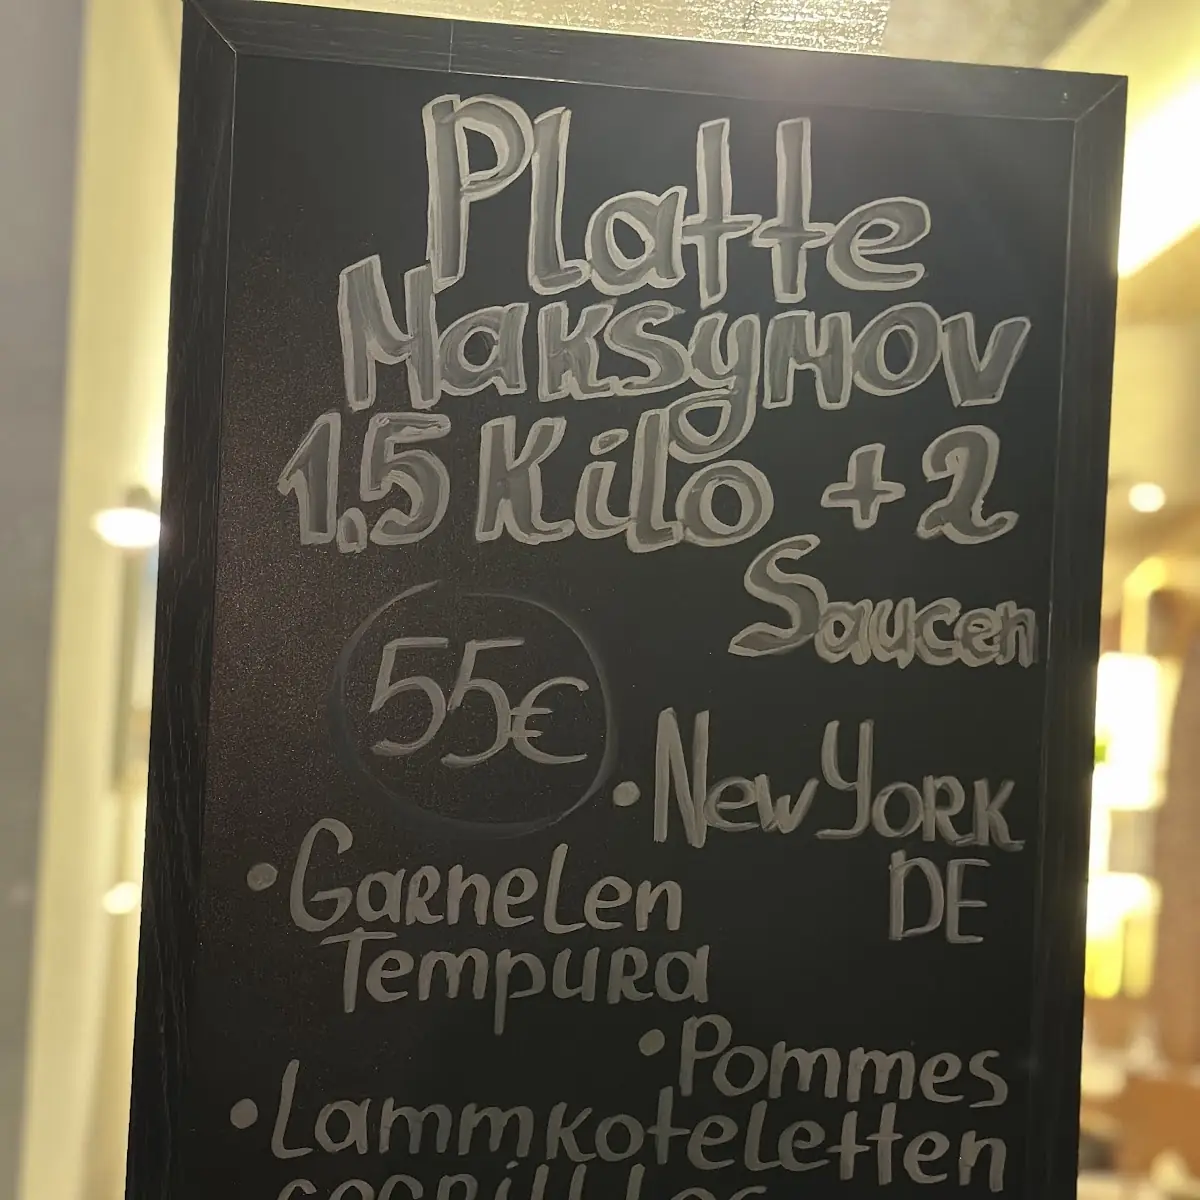 Platte
Maksymov
1.5 Kilo + 2
Saucen
55€
• New York
DE
• Garnelen
Tempura
• Pommes
• Lammkoteletten